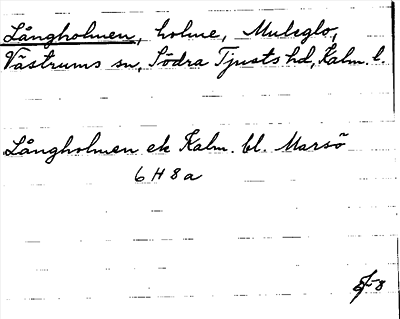 Långholmen, holme, Mulsglo,
Västrums sn, Södra Tjusts hd, Kalm. l.
Långholmen ek Kalm. bl. Marsö
6 H 8 a